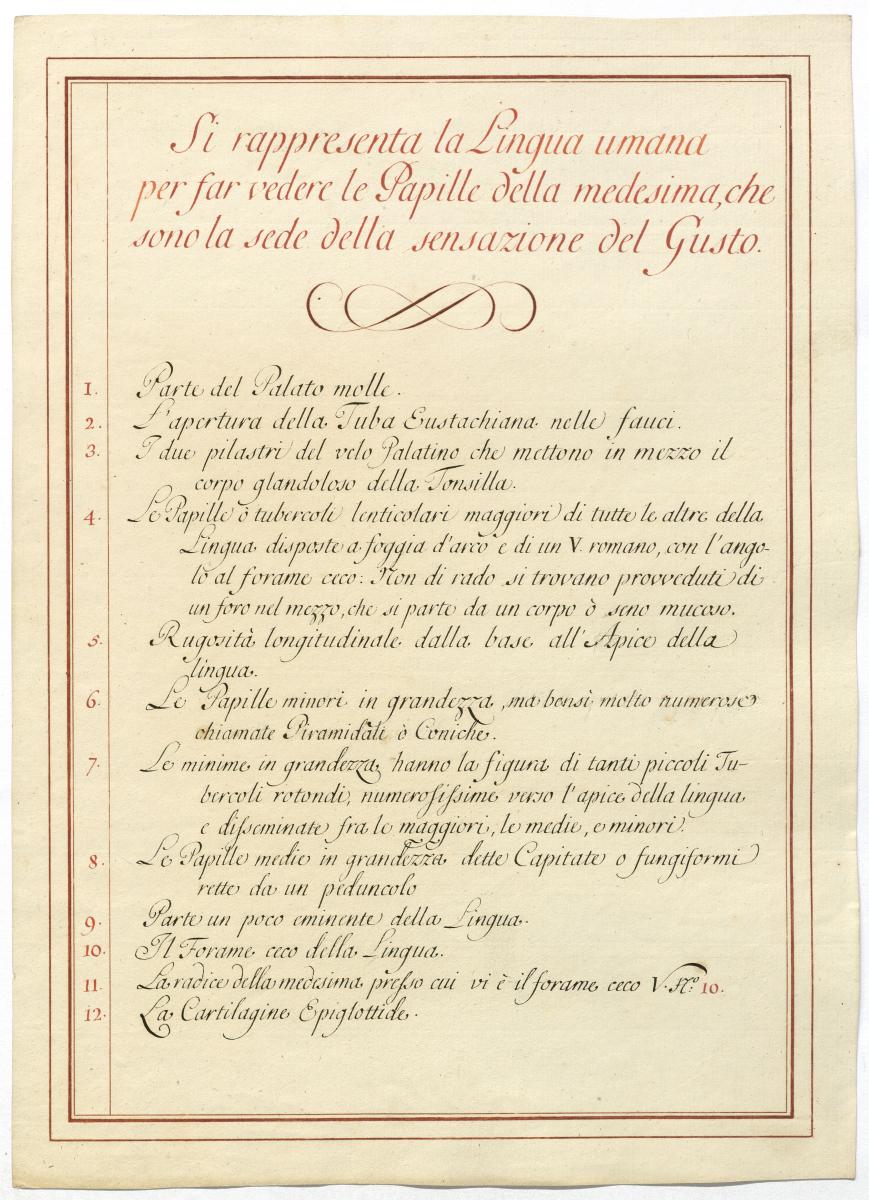 Si rappresenta la Lingua umana
per far vedere le Papille della medesima, che
sono la sede della sensazione del Gusto.
1. Parte del Palato molle.
2. L'apertura della Tuba Eustachiana nelle fauci.
3. I due pilastri del velo Palatino che mettono in mezzo il
corpo glandoloso della Tonsilla.
4. Le Papille ò tubercoli lenticolari maggiori di tutte le altre della
Lingua disposte a foggia d'arco e di un V. romano, con l'ango-
lo al forame ceco: Non di rado si trovano provveduti di
un foro nel mezzo, che si parte da un corpo ò seno mucoso.
5. Rugosità longitudinale dalla base all'Apice della
lingua.
6. Le Papille minori in grandezza, ma bensì molto numerose
chiamate Piramidati ò Coniche.
7. Le minime in grandezza hanno la figura di tanti piccoli Tu-
bercoli rotondi, numerosissime verso l'apice della lingua
e disseminate fra le maggiori, le medie, e minori.
8. Le Papille medie in grandezza dette Capitate o fungiformi
rette da un peduncolo
9. Parte un poco eminente della Lingua.
10. Il Forame ceco della Lingua.
11. La radice della medesima presso cui vi è il forame ceco V. No. 10.
12. La Cartilagine Epiglottide.